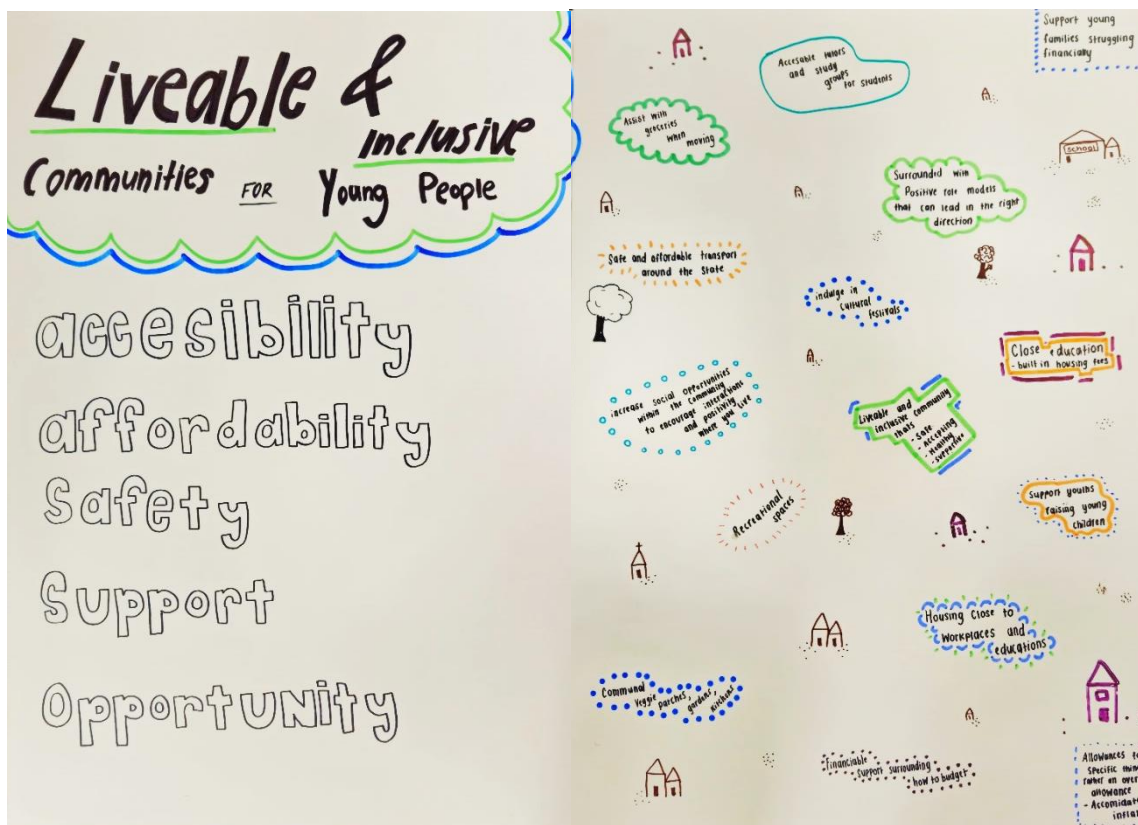 Liveable &
Inclusive
Communities FOR Young People
accesibility
affordability
Safety
Support
Opportunity
Support young
families struggling
financially
Accesable tutors
and study
groups
for students
Assist with
groceries
when
moving
school
Surrounded with
Positive role models
that can lead in the right
direction
Safe and affordable transport
around the State
indulge in
Cultural
festivals
Close education
- built in housing fees
increase Social Opportunities
within the community
to encourage interactions
and positivity
where you live
Liveable and
inclusive community
thats
- Safe
- Accepting
- Healthy
- supportive
Recreational
spaces
Support youths
raising young
children
Housing Close to
Workplaces and
educations
Communal
Veggie parches,
gardens,
kitchens
Financiable
support surrounding
how to budget
Allowances
specific
rather an
allowance